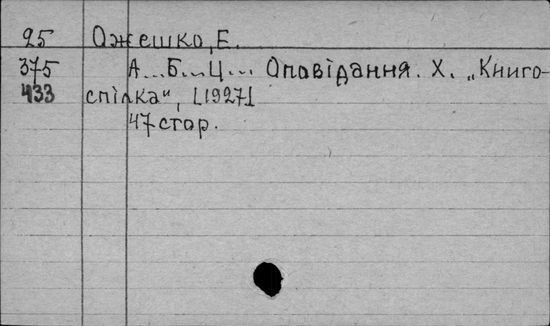 25 Ожешко, Е.
375 А...Б...Ц... Оповідання. Х. „Книго-
433 спілка", [1927]
47 стор.